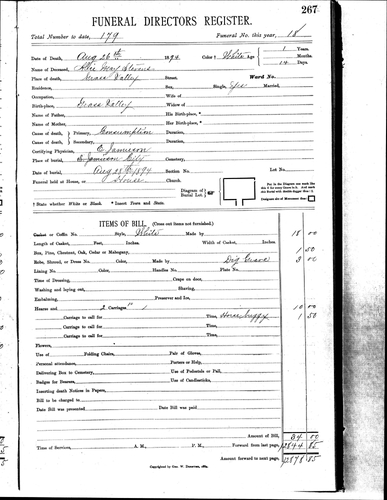 267
FUNERAL DIRECTORS REGISTER.
Total Number to date, 179 Funeral No. this year, 18
Date of Death, Aug 26th 1894 Color † White Age 1 Years
Months
Name of Deceased, May 14 Days
Place of death, Grass Valley Street, Ward No.
Residence, Sex, Single, Yes Married,
Occupation, Wife of
Birth-place, Grass Valley Widow of
Name of Father, His Birth-place, *
Name of Mother, Her Birth-place, *
Cause of death, Primary, Consumption Duration,
Cause of death, Secondary, Duration,
Certifying Physician, C. Jamison
Place of burial, Jamison City Cemetery,
Date of burial, Aug 28th 1894 Section No. Lot No.
Funeral held at House, or House Church.
Diagram of Lot or Vault
Put in the Diagram and mark the
Designate site of Monument thus
† State whether White or Black. * Insert Town and State.
ITEMS OF BILL. (Cross out items not furnished.)
Casket or Coffin No. Style, White Made by 18 00
Length of Casket, Feet, Inches. Width of Casket, Inches.
Box, Pine, Chestnut, Oak, Cedar or Mahogany, 1 50
Robe, Shroud, or Dress No. Color, Made by Dig Grave 3 00
Lining No. Color, Handles No. Plate No.
Time of Dressing, Crape on door,
Washing and laying out, Shaving,
Embalming, Preserver and Ice,
Hearse and 2 Carriages 10 00
Carriage to call for Time, Horse buggy 1 50
Carriage to call for Time,
Carriage to call for Time,
Flowers,
Use of Folding Chairs, Pair of Gloves,
Personal attendance, Porters or Help,
Delivering Box to Cemetery, Use of Pedestals or Pall,
Badges for Bearers, Use of Candlesticks,
Inserting death Notices in Papers,
Bill to be charged to
Date Bill was presented Date Bill was paid
Amount of Bill, 34 00
Time of Services, A. M., P. M., Forward from last page, 12844 85
Amount forward to next page, 12878 85